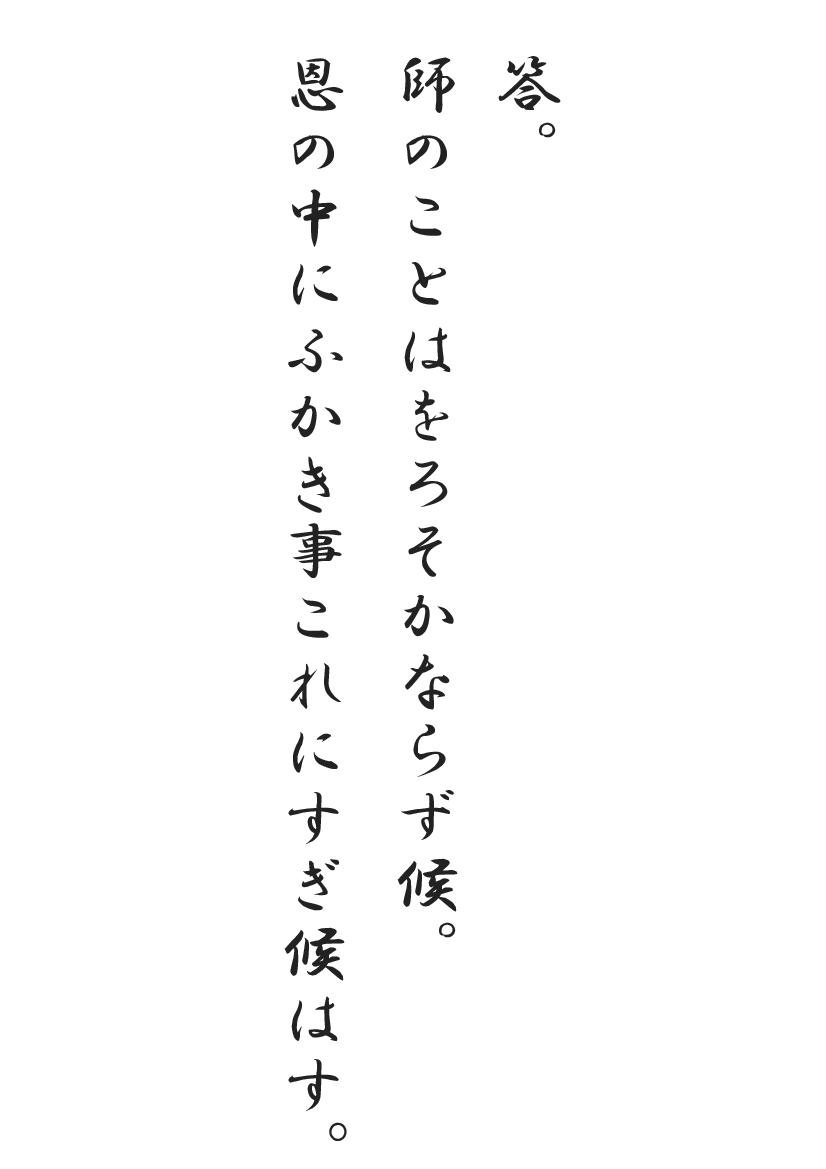 答。
師のことはをろそかならず候。
恩の中にふかき事これにすぎ候はす。